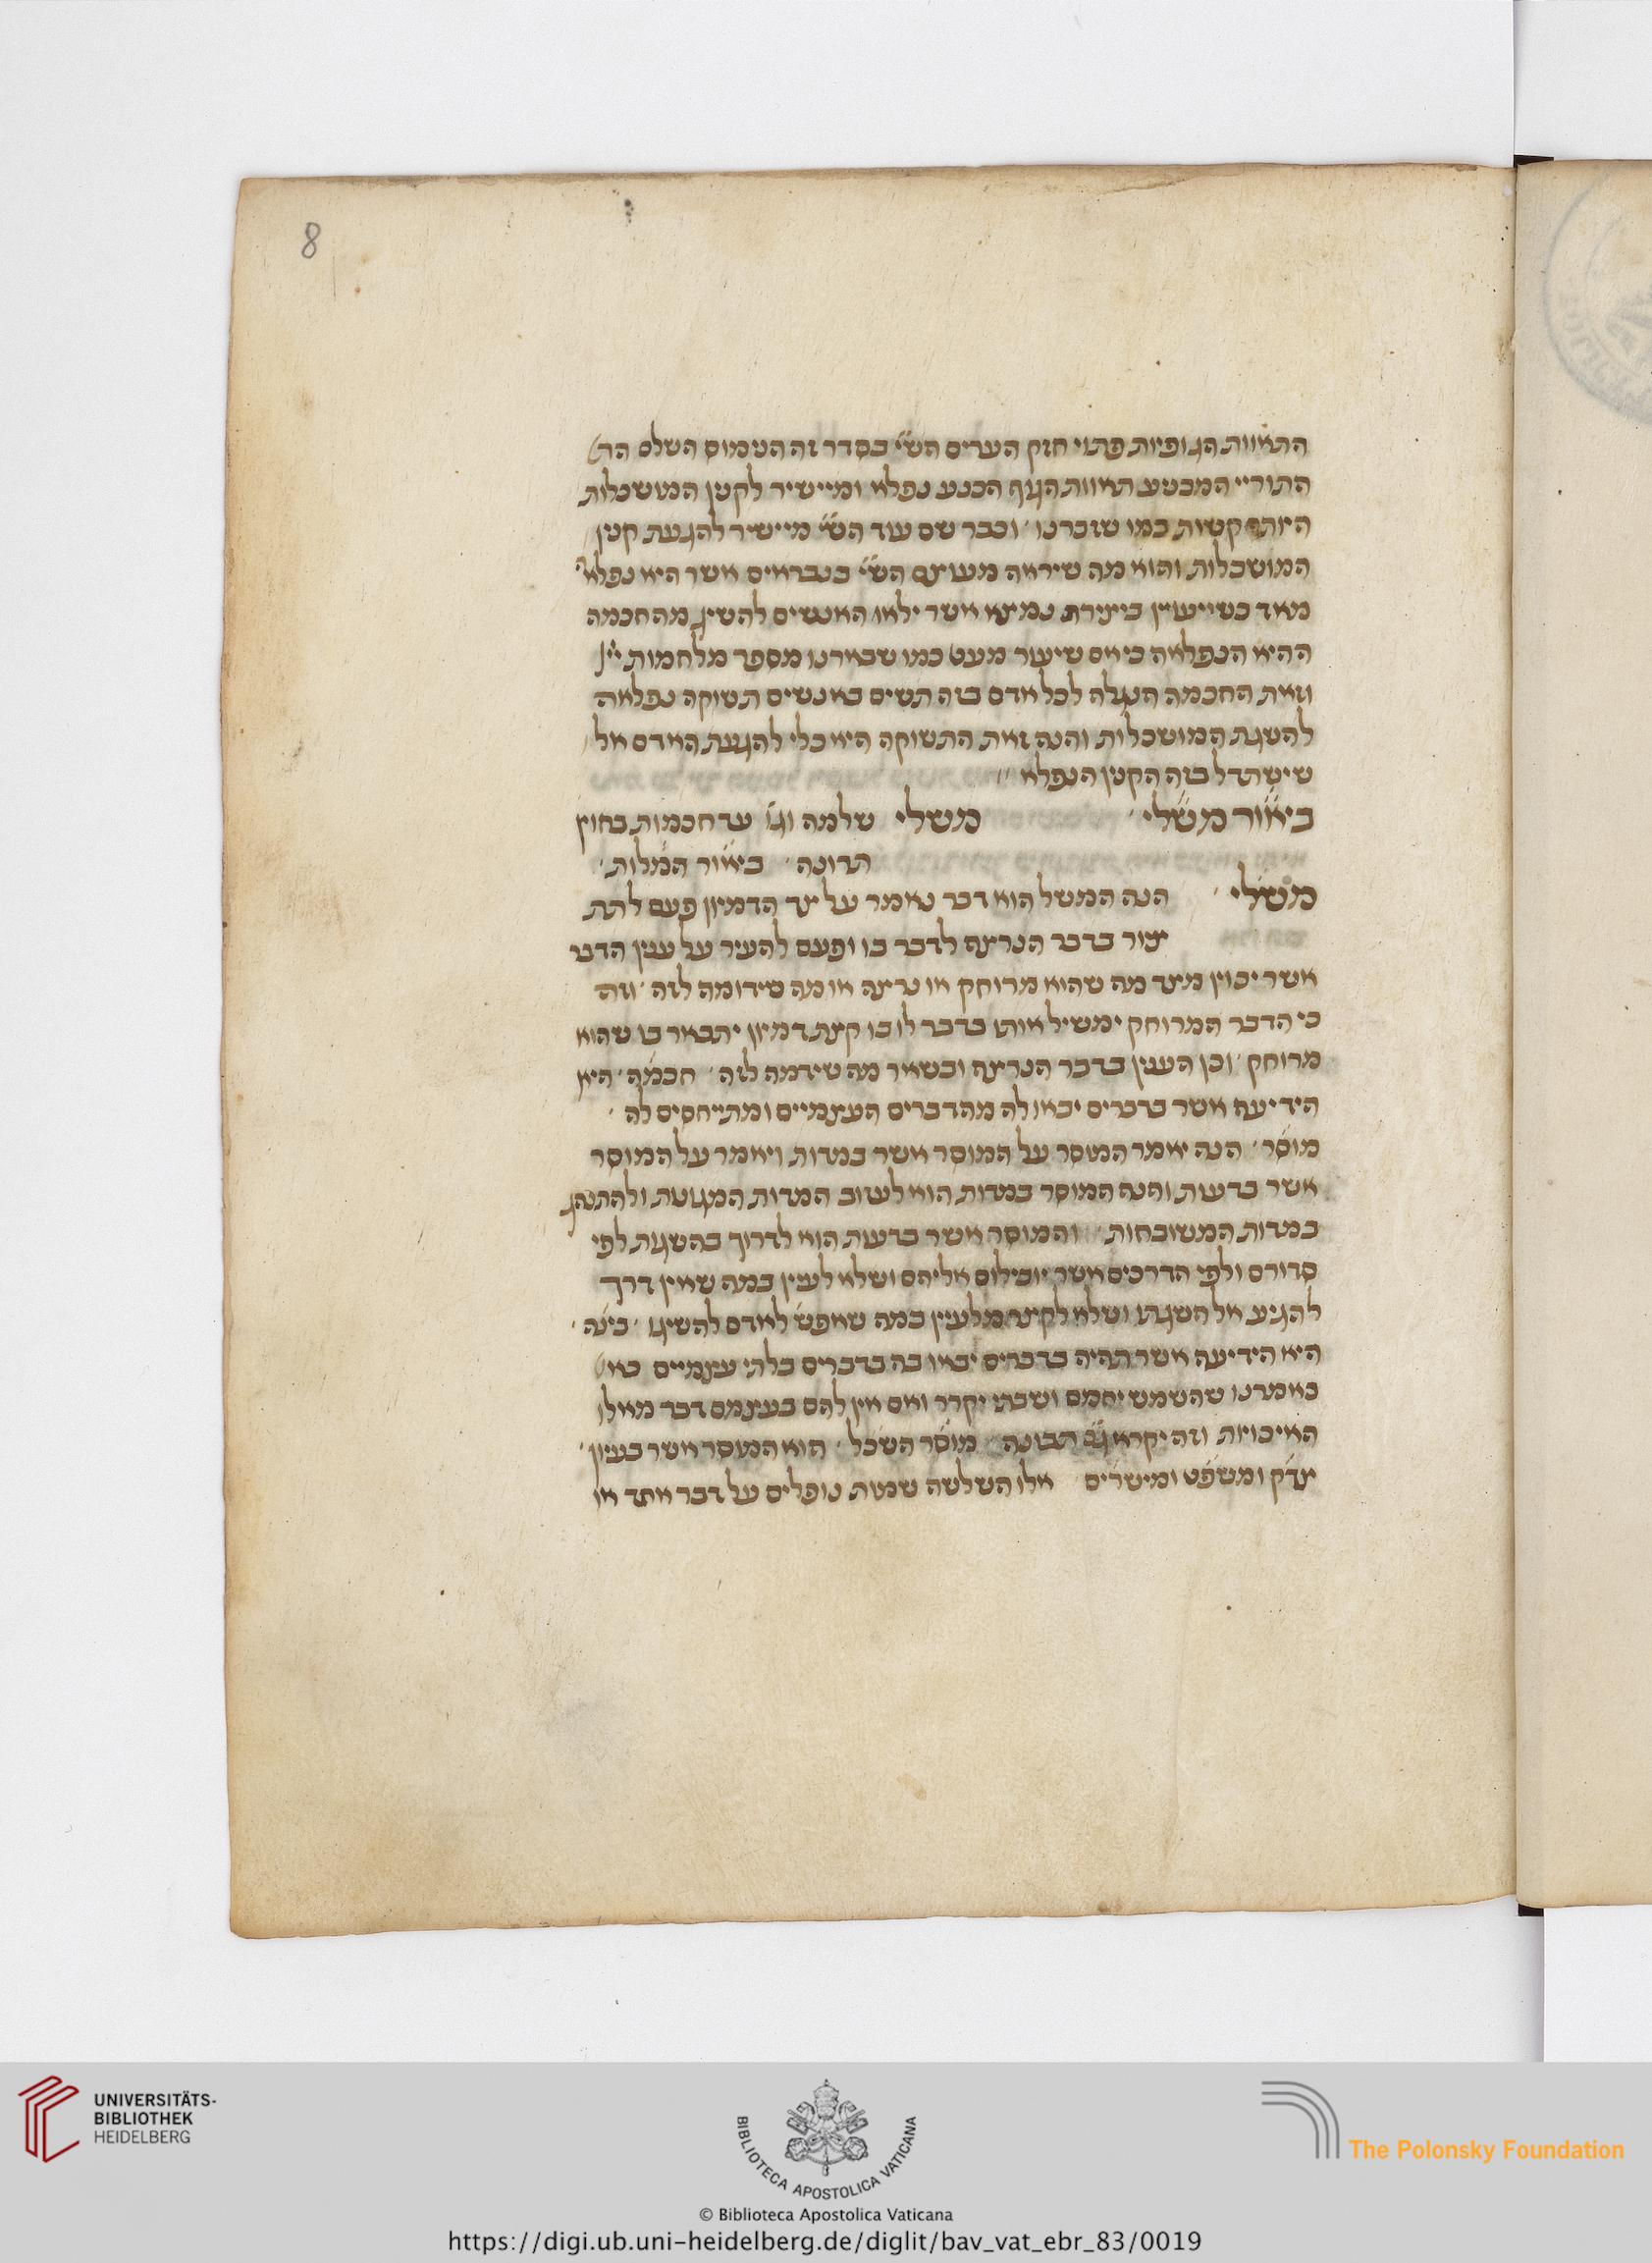 8
התאוות הגופיות פתוי חזק הערים הש״י בסדר זה הנימוס השלם הר
התוריי המכניע תאוות הגוף הכנע נפלא ומיישיר לקנין המושכלות
היותר קשות כמו שזכרנו וכבר שם עוד הש״י מיישיר להגעת קנין
המושכלות והוא מה שיראה מעוצם הש״י בנבראים אשר היא נפלא
מאד כשייעויין ביצירת נמצא אשר ילאו האנשים להשיג מהחכמה
ההיא הנפלאה כי אם שיעור מעט כמו שבארנו מספר מלחמות י״י
וזאת החכמה הנגלה לכל אדם בזה תשים באנשים תשוקה נפלאה
להשגת המושכלות והנה זאת התשוקה היא כלי להגעת האדם אל
שישתדל בזה הקנין הנפלא
ביאור משלי משלי שלמה וגו׳ עד חכמות בחוץ
תרונה ביאור המלות
משלי הנה המשל הוא דבר נאמר על צד הדמיון פעם לתת
ציור בדבר הנרצה לדבר בו ופעם להעיר על ענין הדבר
אשר יכוין מצד מה שהוא מרוחק או נרצה או מה שידומה לזה וזה
כי הדבר המרוחק ימשיל אותו בדבר לו בו קצת דמיון יתבאר בו שהוא
מרוחק וכן הענין בדבר הנרצה ובשאר מה שידמה לזה חכמה היא
הידיעה אשר בדברים יבאו לה מהדברים העצמיים ומתיחסים לה
מוסר הנה יאמר המוסר על המוסר אשר במדות ויאמר על המוסר
אשר בדעות והנה המוסר במדות הוא לעזוב המדות המגונות ולהתנהג
במדות המשובחות והמוסר אשר בדעות הוא לדרוך בהשגות לפי
סדורם ולפי הדרכים אשר יובילום אליהם ושלא לעיין במה שאין דרך
להגיע אל השגתו ושלא לקצר מלעיין במה שאפש׳ לאדם להשיגו בינה
היא הידיעה אשר תהיה בדברים יבאו בה בדברים בלתי עצמיים כא
כאמרנו שהשמש יחמם ושבתי יקרר ואם אין להם בעצמם דבר מאלו
האיכויות וזה יקרא ג״כ תבונה מוסר השכל הוא המוסר אשר בעיון
צדק ומשפט ומישרים אלו השלשה שמות נופלים על דבר אחד או
UNIVERSITÄTS-
BIBLIOTHEK
HEIDELBERG
BIBLIOTECA APOSTOLICA VATICANA
The Polonsky Foundation
© Biblioteca Apostolica Vaticana
https://digi.ub.uni-heidelberg.de/diglit/bav_vat_ebr_83/0019